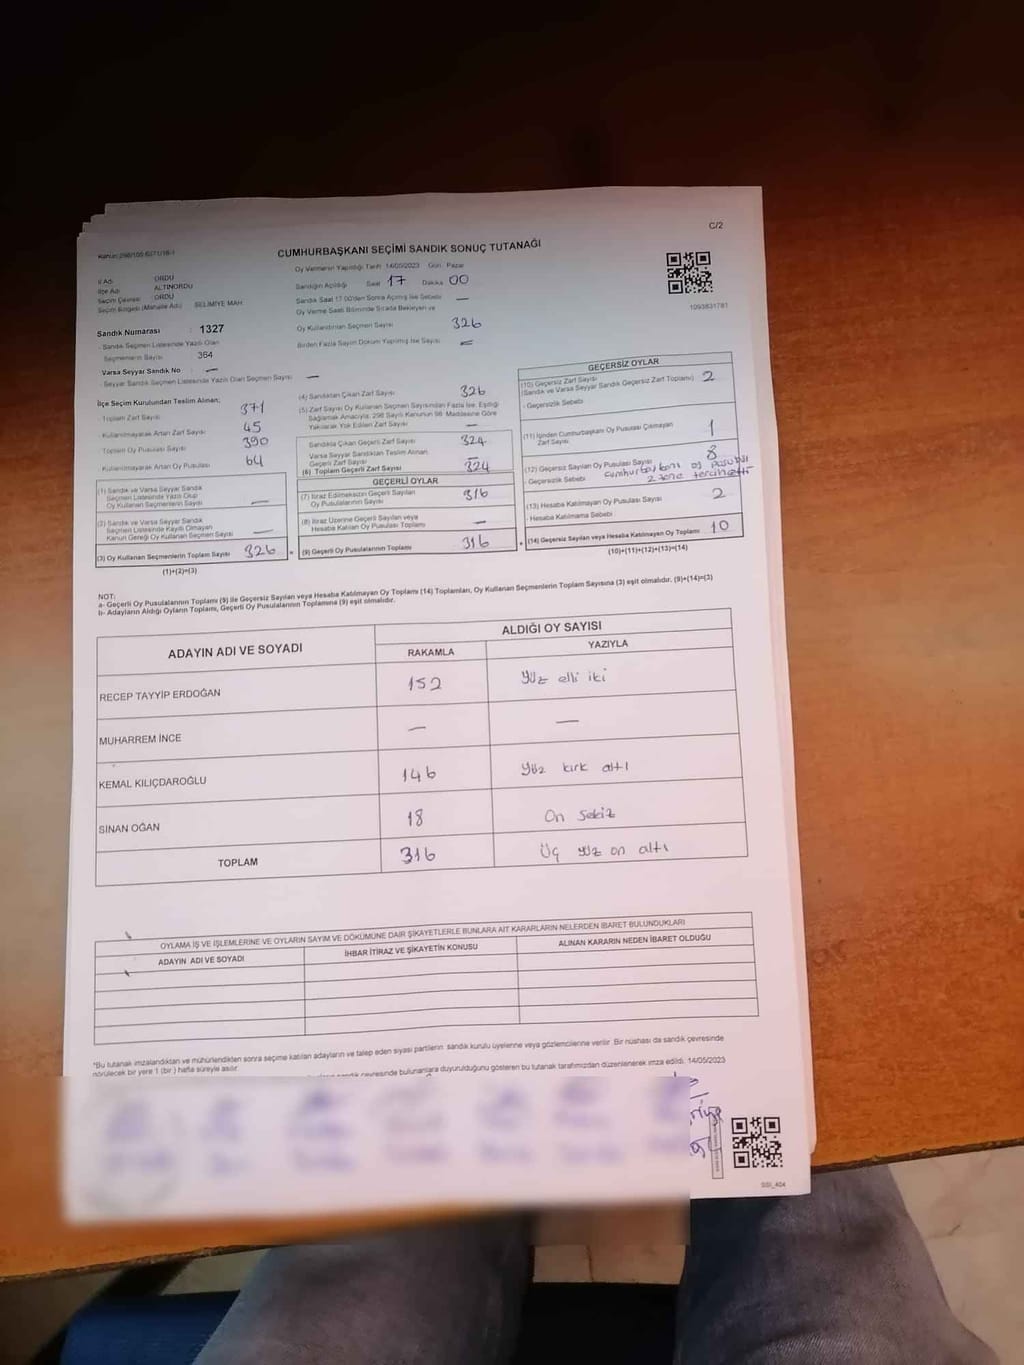 C/2
CUMHURBAŞKANI SEÇİMİ SANDIK SONUÇ TUTANAĞI
Oy Vermenin Yapıldığı Tarih 14/05/2023 Gün: Pazar
İl Adı ORDU
İlçe Adı ALTINORDU
Seçim Çevresi ORDU
Seçim Bölgesi (Mahalle Adı) SELİMİYE MAH
Sandık Numarası : 1327
- Sandık Seçmen Listesinde Yazılı Olan
Seçmenlerin Sayısı 364
Varsa Seyyar Sandık No : —
- Seyyar Sandık Seçmen Listesinde Yazılı Olan Seçmen Sayısı —
Sandığın Açıldığı Saat 17 Dakika 00
Sandık Saat 17.00'den Sonra Açılmış İse Sebebi —
Oy Verme Saati Bitiminde Sırada Bekleyen ve
Oy Kullandırılan Seçmen Sayısı 326
Birden Fazla Sayım Döküm Yapılmış İse Sayısı —
1093831781
İlçe Seçim Kurulundan Teslim Alınan;
- Toplam Zarf Sayısı 371
- Kullanılmayarak Artan Zarf Sayısı 45
- Toplam Oy Pusulası Sayısı 390
- Kullanılmayarak Artan Oy Pusulası 64
(1) Sandık ve Varsa Seyyar Sandık
Seçmen Listesinde Yazılı Olup
Oy Kullanan Seçmenlerin Sayısı —
(2) Sandık ve Varsa Seyyar Sandık
Seçmen Listesinde Kayıtlı Olmayan
Kanun Gereği Oy Kullanan Seçmen Sayısı —
(3) Oy Kullanan Seçmenlerin Toplam Sayısı 326
(1)+(2)=(3)
(4) Sandıktan Çıkan Zarf Sayısı 326
(5) Zarf Sayısı Oy Kullanan Seçmen Sayısından Fazla İse, Eşitliği
Sağlamak Amacıyla, 298 Sayılı Kanunun 98. Maddesine Göre
Yakılarak Yok Edilen Zarf Sayısı —
Sandıkta Çıkan Geçerli Zarf Sayısı 324
Varsa Seyyar Sandıktan Teslim Alınan
Geçerli Zarf Sayısı —
(6) Toplam Geçerli Zarf Sayısı 324
GEÇERLİ OYLAR
(7) İtiraz Edilmeksizin Geçerli Sayılan
Oy Pusulalarının Sayısı 316
(8) İtiraz Üzerine Geçerli Sayılan veya
Hesaba Katılan Oy Pusulası Toplamı —
= (9) Geçerli Oy Pusulalarının Toplamı 316
GEÇERSİZ OYLAR
(10) Geçersiz Zarf Sayısı
(Sandık ve Varsa Seyyar Sandık Geçersiz Zarf Toplamı) 2
- Geçersizlik Sebebi
(11) İçinden Cumhurbaşkanı Oy Pusulası Çıkmayan
Zarf Sayısı 1
(12) Geçersiz Sayılan Oy Pusulası Sayısı 8
- Geçersizlik Sebebi cumhurbaşkanı oy pusulası
2 tane tercih etti
(13) Hesaba Katılmayan Oy Pusulası Sayısı 2
- Hesaba Katılmama Sebebi
+ (14) Geçersiz Sayılan veya Hesaba Katılmayan Oy Toplamı 10
(10)+(11)+(12)+(13)=(14)
NOT:
a- Geçerli Oy Pusulalarının Toplamı (9) ile Geçersiz Sayılan veya Hesaba Katılmayan Oy Toplamı (14) Toplamları, Oy Kullanan Seçmenlerin Toplam Sayısına (3) eşit olmalıdır. (9)+(14)=(3)
b- Adayların Aldığı Oyların Toplamı, Geçerli Oy Pusulalarının Toplamına (9) eşit olmalıdır.
ADAYIN ADI VE SOYADI ALDIĞI OY SAYISI
RAKAMLA YAZIYLA
RECEP TAYYİP ERDOĞAN 152 yüz elli iki
MUHARREM İNCE — —
KEMAL KILIÇDAROĞLU 146 yüz kırk altı
SİNAN OĞAN 18 On sekiz
TOPLAM 316 Üç yüz on altı
OYLAMA İŞ VE İŞLEMLERİNE VE OYLARIN SAYIM VE DÖKÜMÜNE DAİR ŞİKAYETLERLE BUNLARA AİT KARARLARIN NELERDEN İBARET BULUNDUKLARI
ADAYIN ADI VE SOYADI İHBAR İTİRAZ VE ŞİKAYETİN KONUSU ALINAN KARARIN NEDEN İBARET OLDUĞU
*Bu tutanak imzalandıktan ve mühürlendikten sonra seçime katılan adayların ve talep eden siyasi partilerin sandık kurulu üyelerine veya gözlemcilerine verilir. Bir nüshası da sandık çevresinde
görülecek bir yere 1 (bir) hafta süreyle asılır.
sandık çevresinde bulunanlara duyurulduğunu gösteren bu tutanak tarafımızdan düzenlenerek imza edildi. 14/05/2023
SSİ_404